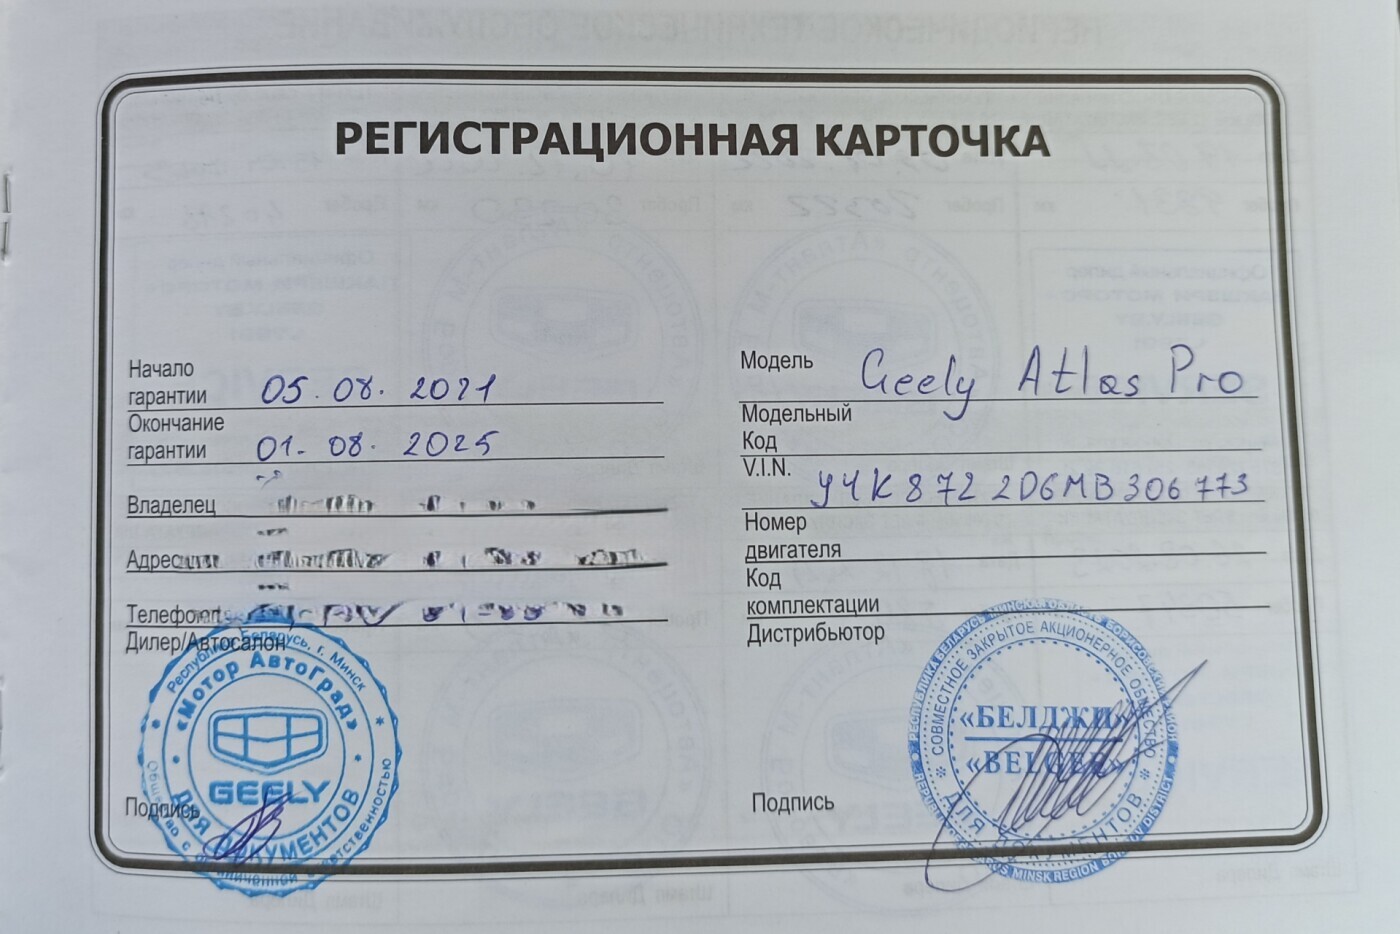 РЕГИСТРАЦИОННАЯ КАРТОЧКА
Начало
гарантии 05.08.2021
Окончание
гарантии 01.08.2025
Владелец
Адрес
Телефон
Дилер/Автосалон
Республика Беларусь, г. Минск
«Мотор АвтоГрад»
GEELY
ДЛЯ ДОКУМЕНТОВ
Подпись
Модель Geely Atlas Pro
Модельный
Код
V.I.N. Y4K8722D6MB306773
Номер
двигателя
Код
комплектации
Дистрибьютор
РЕСПУБЛИКА БЕЛАРУСЬ МИНСКАЯ ОБЛАСТЬ БОРИСОВСКИЙ РАЙОН
СОВМЕСТНОЕ ЗАКРЫТОЕ АКЦИОНЕРНОЕ ОБЩЕСТВО
«БЕЛДЖИ»
«BELGEE»
ДЛЯ ДОКУМЕНТОВ
MINSK REGION BORISOV DISTRICT
Подпись